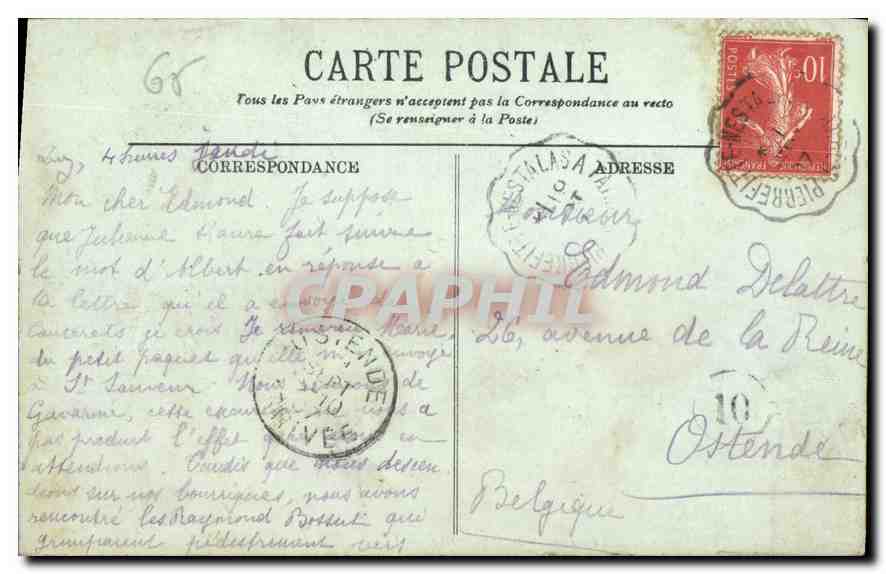 65
CARTE POSTALE
Tous les Pays étrangers n'acceptent pas la Correspondance au recto
(Se renseigner à la Poste)
CORRESPONDANCE
ADRESSE
Luz, 4 heures Jeudi
Mon cher Edmond. Je suppose
que Julienne t'aura fait suivre
le mot d'Albert en réponse à
la lettre qu'il a envoyé
Cauterets je crois Je remercie Marie
du petit paquet qu'elle m'a envoyé
à St Sauveur. Nous de
Gavarnie, cette excursion nous a
pas produit l'effet que nous en
attendions. Tandis que nous descen
dions sur nos bourriques, nous avons
rencontré les Raymond Bossut qui
grimpaient pédestrement vers
Monsieur
Edmond Delattre
26, avenue de la Reine
Ostende
Belgique
10
OSTENDE
OCT
10
ARRIVÉE
PIERREFITTE-NESTALAS A TAR
PIERREFITTE-NESTALAS
10c
POSTES
REPUBLIQUE FRANÇAISE
CPAPHIL